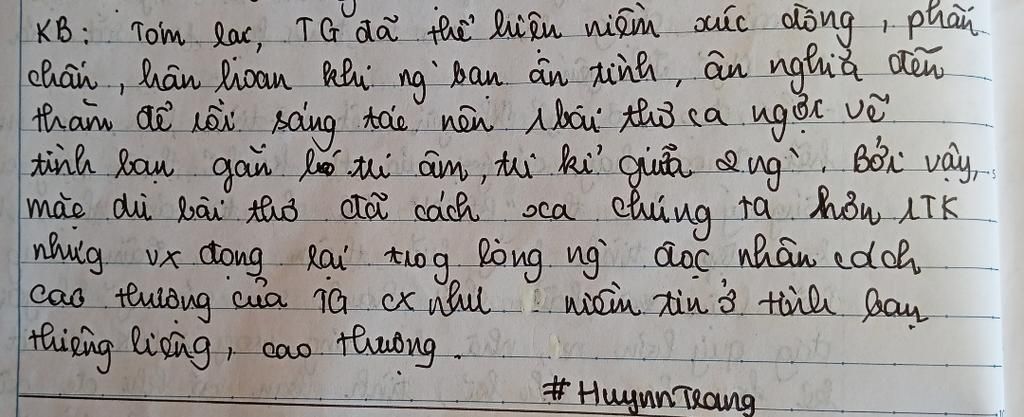 KB: Tóm lại, TG đã thể hiện niềm xúc động, phấn
chấn, hân hoan khi ng` bạn ân tình, ân nghĩa đến
thăm để rồi sáng tác nên 1 bài thơ ca ngợi về
tình bạn gắn bó tri âm, tri kỉ giữa 2 ng`. Bởi vậy,
mặc dù bài thơ đã cách xa chúng ta hơn 1TK
nhưg vx đọng lại trog lòng ng` đọc nhân cách
cao thượng của TG cx như niềm tin ở tình bạn
thiêng liêng, cao thượng.
#HuynnTrang